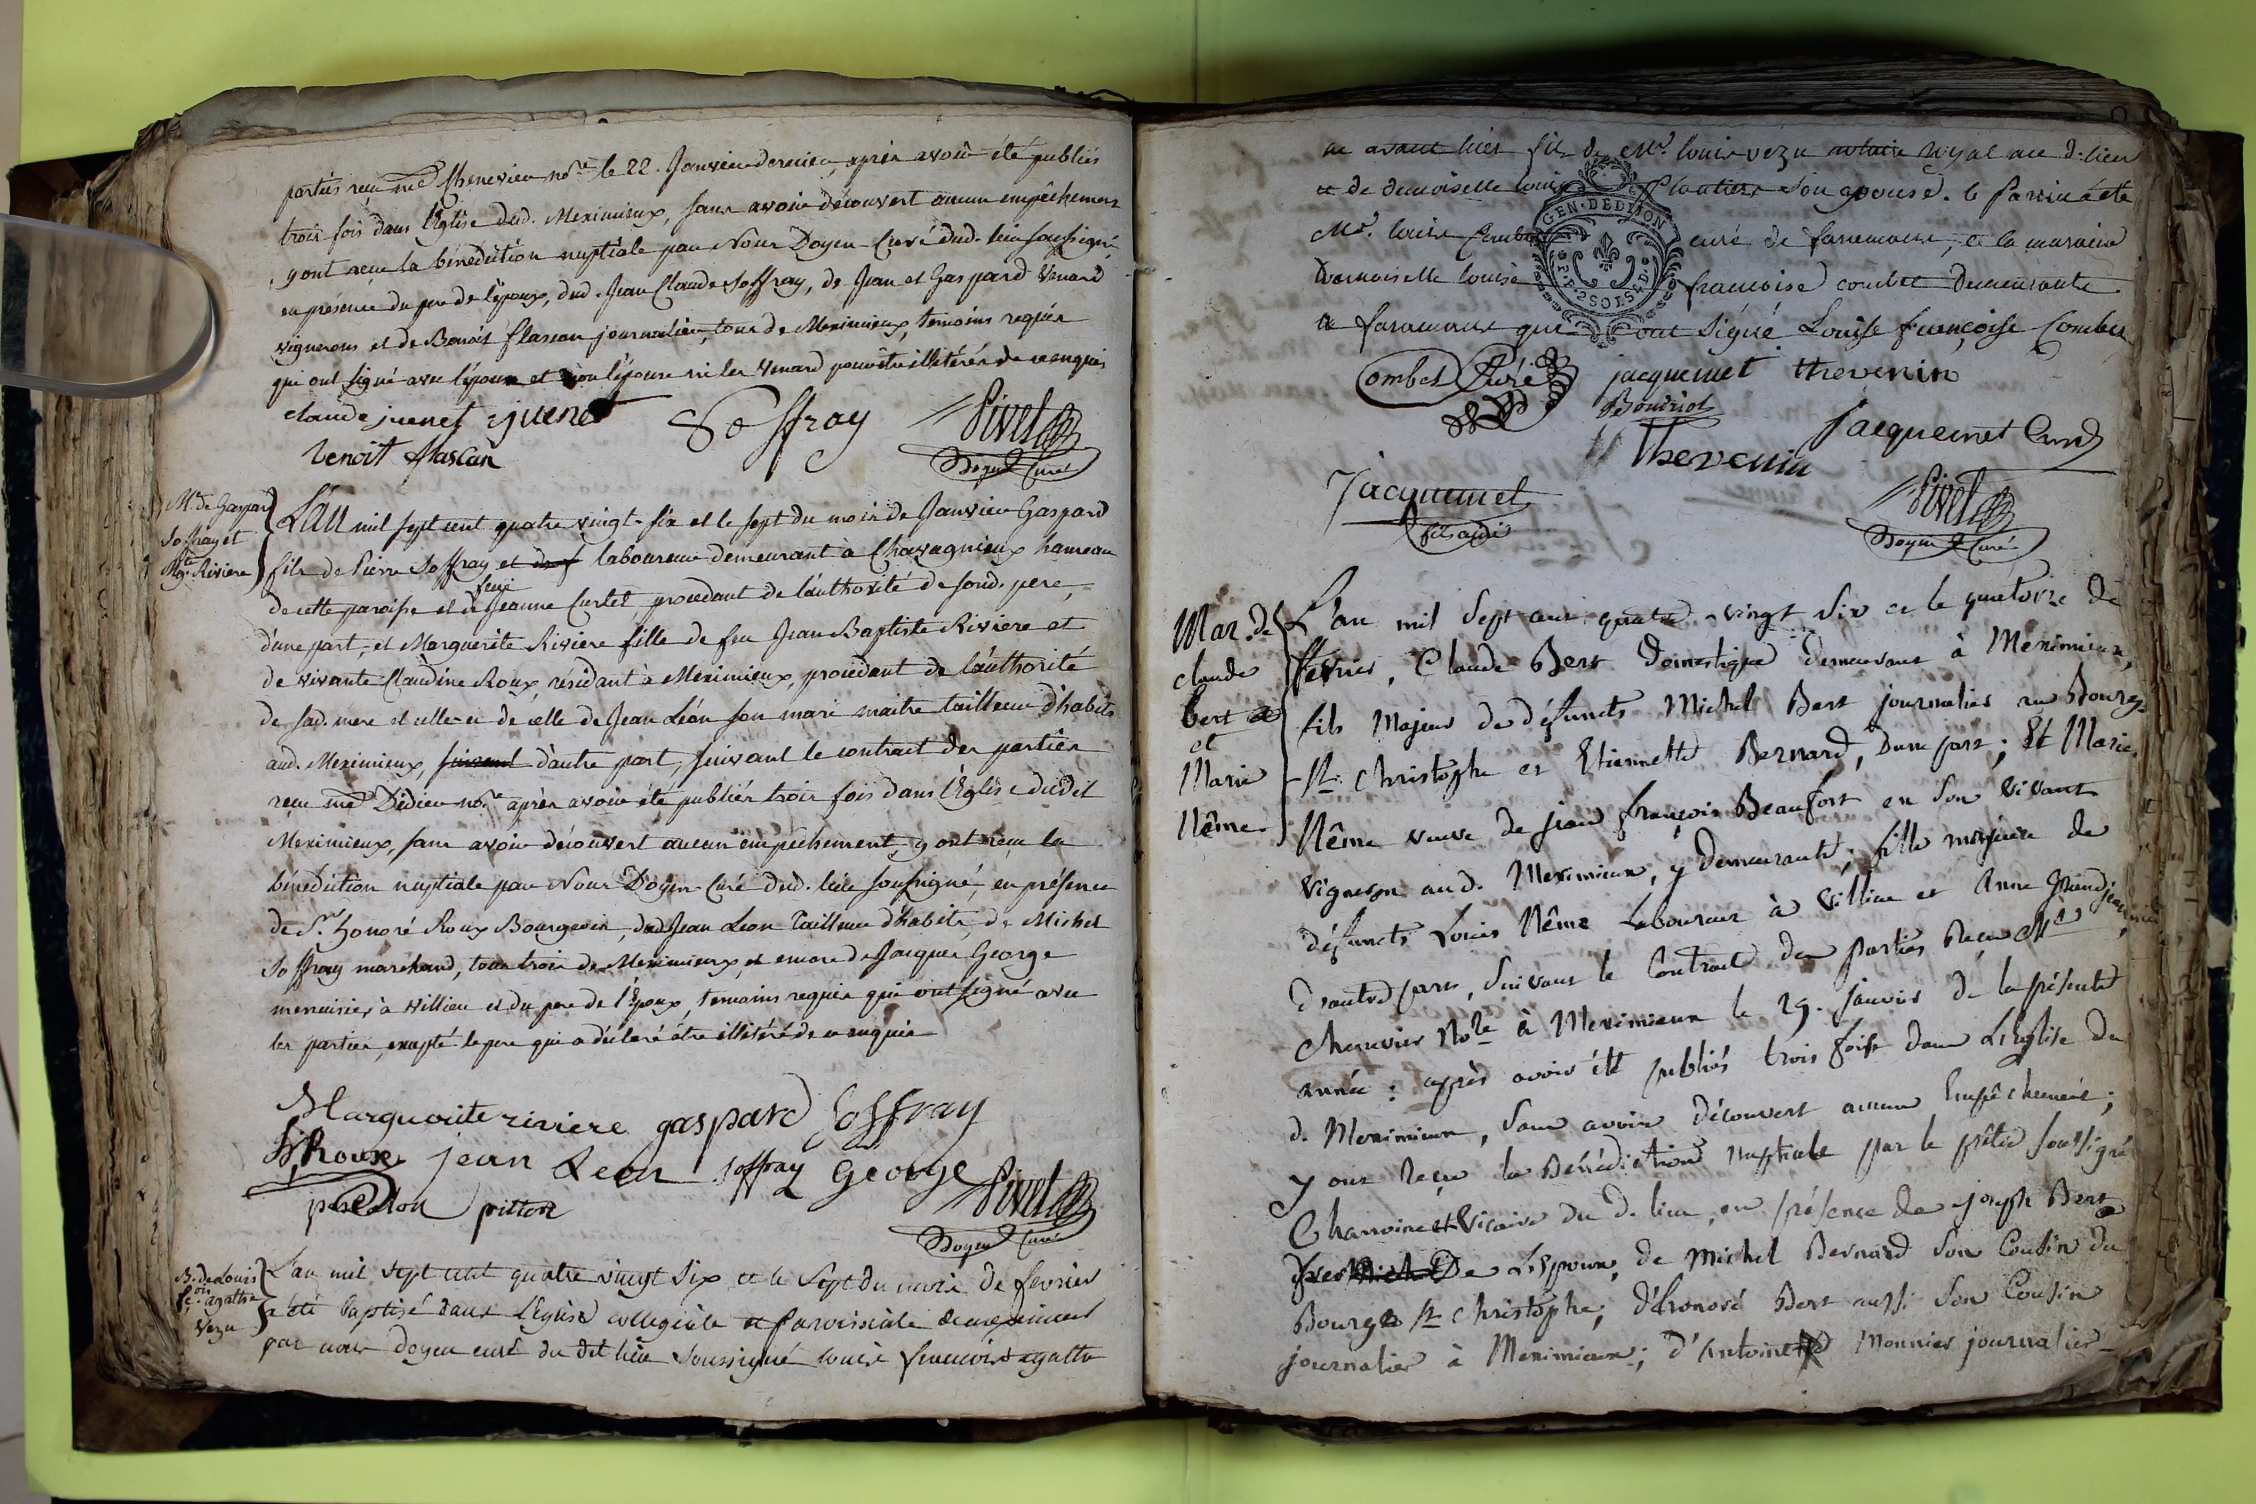 parties reçu me Chenevier nore le 22. Janvier dernier, après avoir été publiés
trois fois dans l'Eglise dud. Meximieux, sans avoir découvert aucun empêchement
y ont reçu la bénédiction nuptiale par Nous Doyen-Curé dud. lieu soussigné,
en présence du pere de l'epoux, dud. Jean Claude Soffray, de Jean et Gaspard Venard
vignerons et de Benoit flascan journalier, tous de Meximieux, temoins requis
qui ont signé avec l'époux et non l'épouse ni les Venard pour être illitérés de ce enquis
claude juenet juenet Soffray Livet
benoit flascan Doyen Curé
M. de Gaspard
Soffray et
Mgte. Riviere
L'an mil sept cent quatre vingt-six et le sept du mois de Janvier Gaspard
fils de Pierre Soffray et def laboureur demeurant à Chavagnieux hameau
de cette paroisse et de feue Jeanne Curtet procedant de l'authorité de sond. pere,
d'une part, et Marguerite Riviere fille de feu Jean Baptiste Riviere et
de vivante Claudine Roux, résidant à Meximieux, procedant de l'authorité
de sad. mere et celle-ci de celle de Jean Léon son mari maitre tailleur d'habits
aud. Meximieux, suivant d'autre part, suivant le contract des parties
reçu me Didier nore après avoir été publiés trois fois dans l'Eglise dudit
Meximieux, sans avoir découvert aucun empêchement, y ont reçu la
bénédiction nuptiale par Nous Doyen-Curé dud. lieu soussigné, en présence
de Sr. Honoré Roux Bourgeois, dud Jean Leon tailleur d'habits, de Michel
Soffray marchand, tous trois de Meximieux, et encore de Jacques George
menuisier à Villieu et du pere de l'époux, temoins requis qui ont signé avec
les parties, excepté le pere qui a déclaré être illitéré de ce enquis
Marguerite riviere gaspard Soffray
Roux jean Leon soffray George Livet
pitton Doyen Curé
B. de Louis
fçois. agathe
Vezu
L'an mil sept cent quatre vingt six et le sept du mois de fevrier
a été baptisé dans l'église collegiale et paroissiale de meximieux
par nous doyen curé du dit lieu soussigné louis françois agathe
né avant hier fils de Mr. louis vezu notaire royal au d. lieu
et de demoiselle louise Plantier son epouse. le parrain a été
Mr. louis Combet curé de faramans, et la maraine
Demoiselle louise françoise combet demeurante
a faramans qui ont signé. Louise françoise Combet
GEN. DE DIJON
P.P. 2 SOLS 8 D.
Combet Curé jacquemet thevenin
Bouriot
Thevenin jacquemet Curé
Jacquemet Livet
fils ainé Doyen Curé
Mar. de
claude
bert et
et
Marie
Nême
L'an mil Sept cent quatre-vingt Six et le quatorze de
fevrier, Claude Bert Domestique demeurant à Meximieux,
fils Majeur de défuncts Michel Bert journalier au Bourg-
St: Christophe et Etiennette Bernard, D'une part; Et Marie
Nême veuve de jean françois Beaufort en son vivant
Vigneron aud. Meximieux, y demeurante; fille majeure de
défuncts Louis Nême Laboureur à Villieu et Anne
D'autre part, Suivant le Contract des parties Reçu Me
Chenevier Nore à Meximieux le 29. janvier de la présente
année: après avoir été publiés trois fois dans L'Eglise du
d. Meximieux, sans avoir découvert aucun Empêchement;
y ont Reçu la Bénédiction nuptiale par le prêtre soussigné
Chanoine et Vicaire du d. lieu, en présence de joseph Bert
frere De L'Epoux, de Michel Bernard son Cousin du
Bourg St Christophe; d'honoré Bert aussi son Cousin
journalier à Meximieux; d'Antoine Monnier journalier